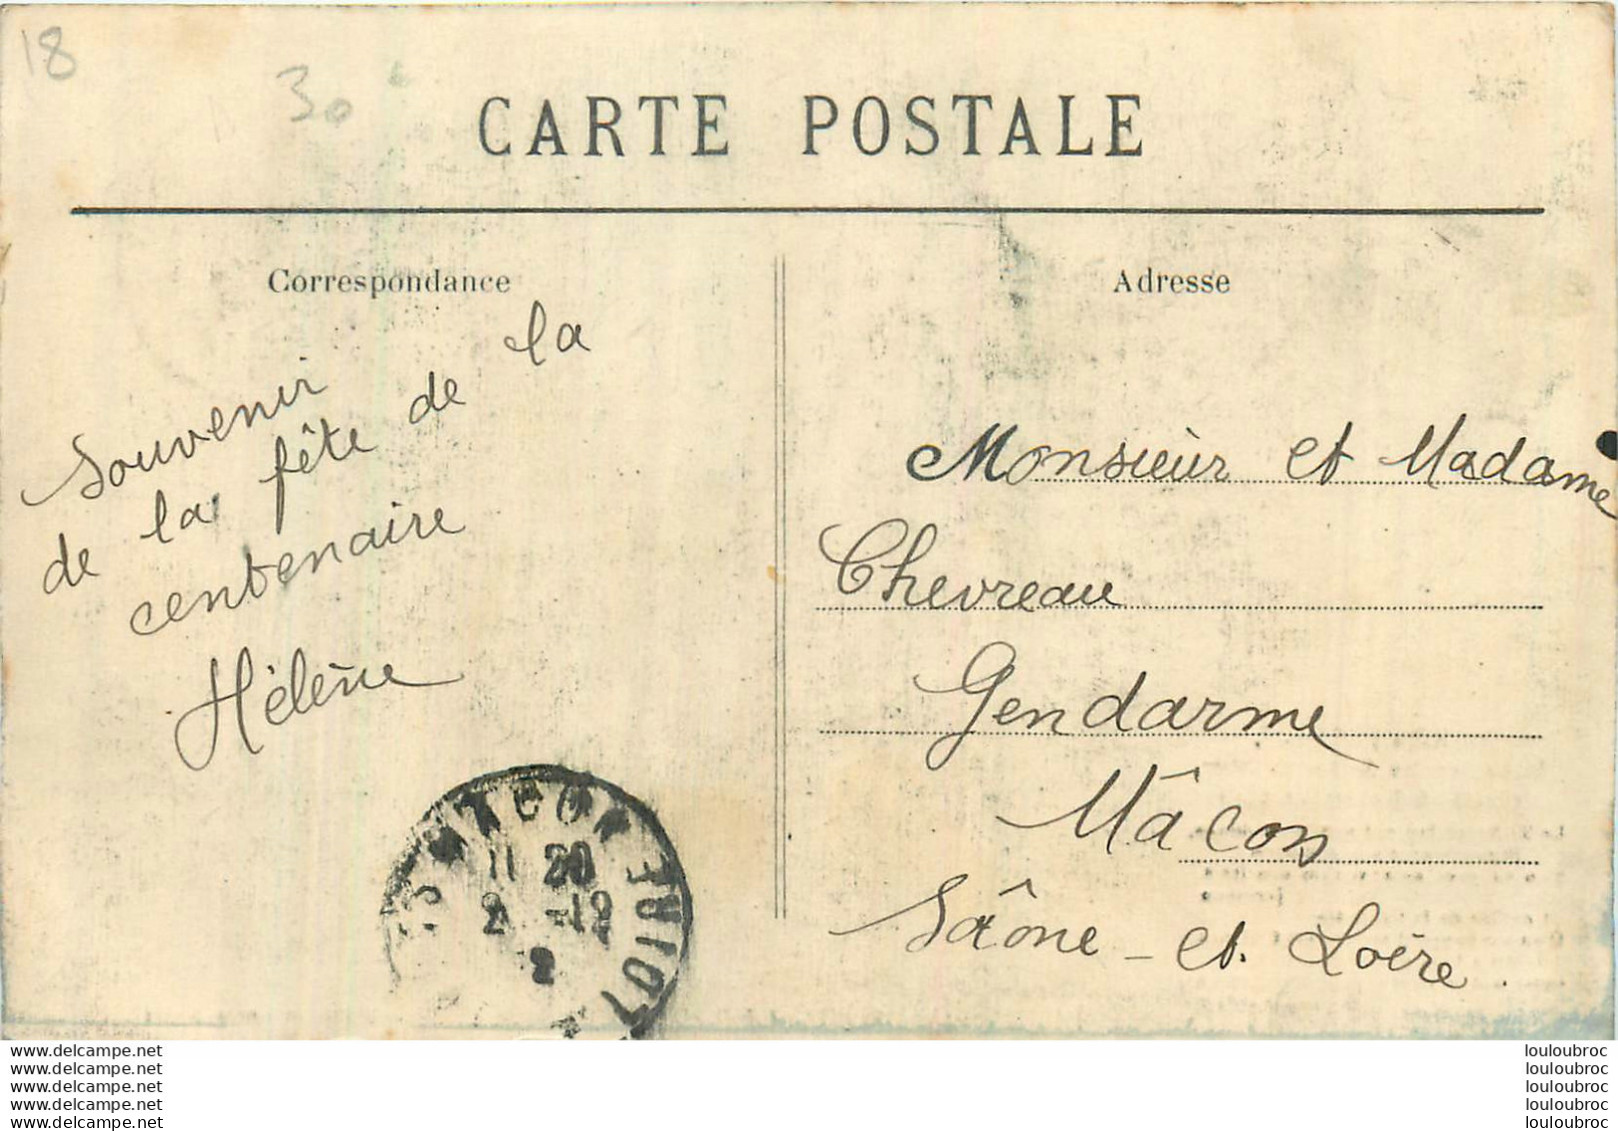 18
30
CARTE POSTALE
Correspondance
Souvenir
de la fête de la
centenaire
Hélène
Adresse
Monsieur et Madame
Chevreau
Gendarme
Mâcon
Saône-et-Loire.
MACON
11 20
www.delcampe.net
www.delcampe.net
www.delcampe.net
www.delcampe.net
www.delcampe.net
louloubroc
louloubroc
louloubroc
louloubroc
louloubroc